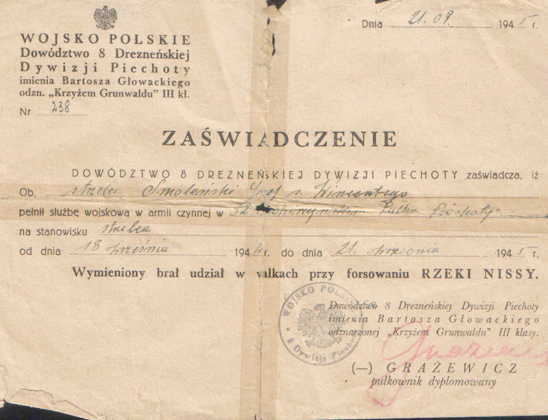 WOJSKO POLSKIE
Dowództwo 8 Drezneńskiej
Dywizji Piechoty
imienia Bartosza Głowackiego
odzn. „Krzyżem Grunwaldu" III kl.
Nr 238
Dnia 21.09. 1945 r.
ZAŚWIADCZENIE
DOWÓDZTWO 8 DREZNEŃSKIEJ DYWIZJI PIECHOTY zaświadcza, iż
Ob. strzelec Smoleński Józef s. Wincentego
pełnił służbę wojskową w armii czynnej w 32 Pułku Piechoty
na stanowisku strzelca
od dnia 18 września 1944 r. do dnia 21 września 1945 r.
Wymieniony brał udział w walkach przy forsowaniu RZEKI NISSY.
WOJSKO POLSKIE
8 Dywizja Piechoty
Dowództwo 8 Drezneńskiej Dywizji Piechoty
imienia Bartosza Głowackiego
odznaczonej „Krzyżem Grunwaldu" III klasy.
(—) GRAŻEWICZ
pułkownik dyplomowany